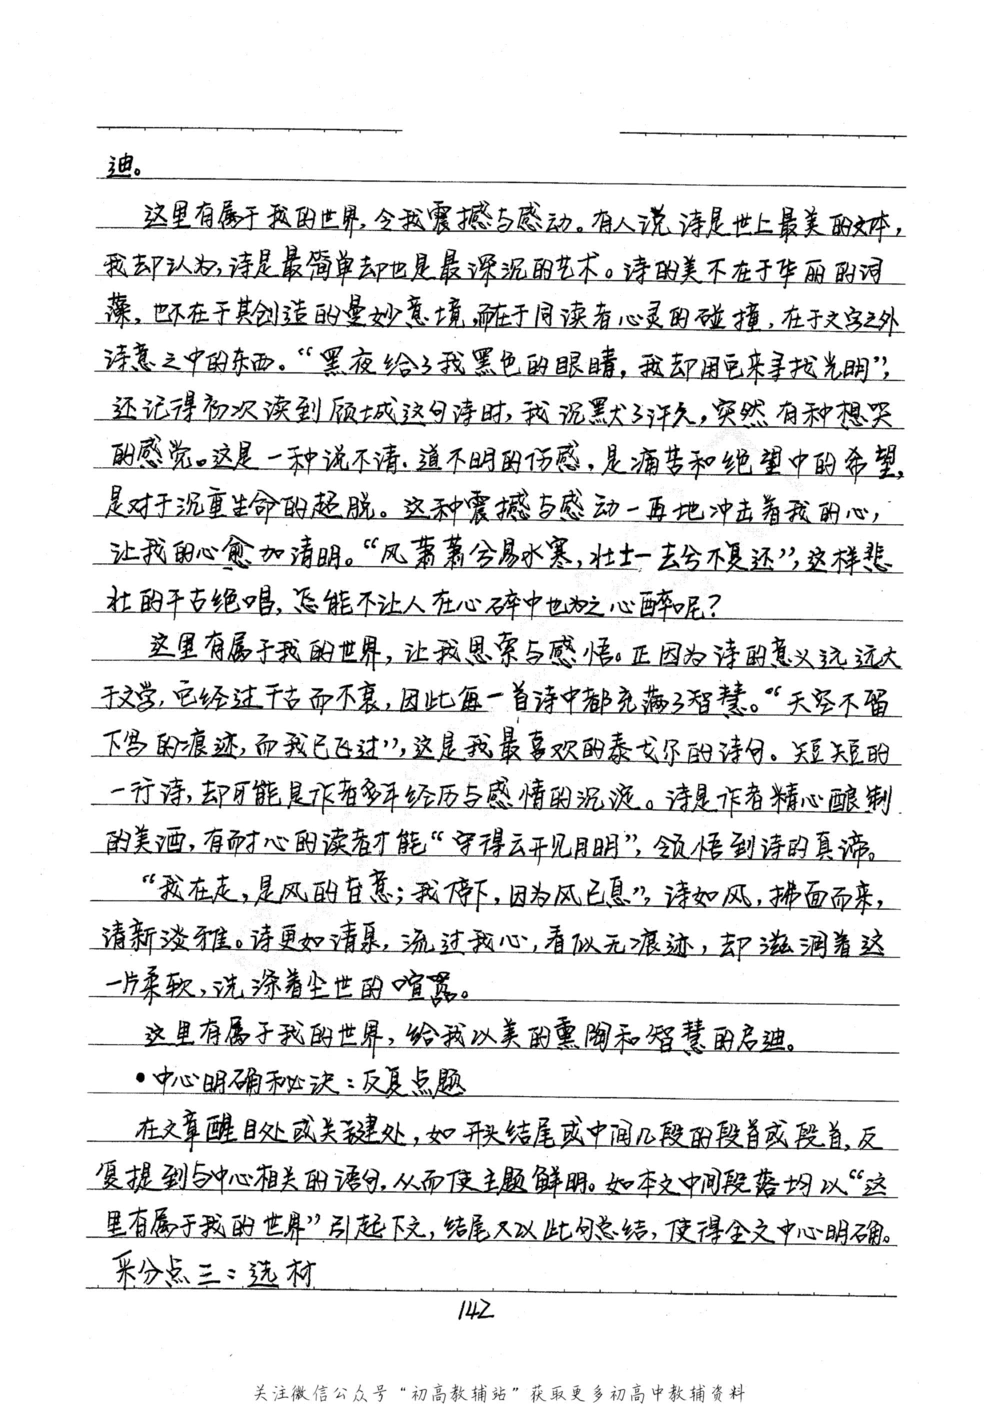 迪。
这里有属于我的世界,令我震撼与感动。有人说诗是世上最美的文体,
我却认为,诗是最简单却也是最深沉的艺术。诗的美不在于华丽的词
藻,也不在于其创造的曼妙意境,而在于同读者心灵的碰撞,在于文字之外
诗意之中的东西。“黑夜给了我黑色的眼睛,我却用它来寻找光明”,
还记得初次读到顾城这句诗时,我沉默了许久,突然有种想哭
的感觉。这是一种说不清、道不明的伤感,是痛苦和绝望中的希望,
是对于沉重生命的超脱。这种震撼与感动一再地冲击着我的心,
让我的心愈加清明。“风萧萧兮易水寒,壮士一去兮不复还”,这样悲
壮的千古绝唱,怎能不让人在心碎中也为之心醉呢?
这里有属于我的世界,让我思索与感悟。正因为诗的意义远远大
于文学,它经过千古而不衰,因此每一首诗中都充满了智慧。“天空不留
下鸟的痕迹,而我已飞过”,这是我最喜欢的泰戈尔的诗句。短短的
一行诗,却可能是作者多年经历与感情的沉淀。诗是作者精心酿制
的美酒,有耐心的读者才能“守得云开见月明”,领悟到诗的真谛。
“我在走,是风的有意;我停下,因为风已息”,诗如风,拂面而来,
清新淡雅。诗更如清泉,流过我心,看似无痕迹,却滋润着这
一片柔软,洗涤着尘世的喧嚣。
这里有属于我的世界,给我以美的熏陶和智慧的启迪。
•中心明确秘决:反复点题
在文章醒目处或关键处,如开头结尾或中间几段的段首或段首,反
复提到与中心相关的语句,从而使主题鲜明。如本文中间段落均以“这
里有属于我的世界”引起下文,结尾又以此句总结,使得全文中心明确。
采分点三:选材
142
关注微信公众号“初高教辅站”获取更多初高中教辅资料